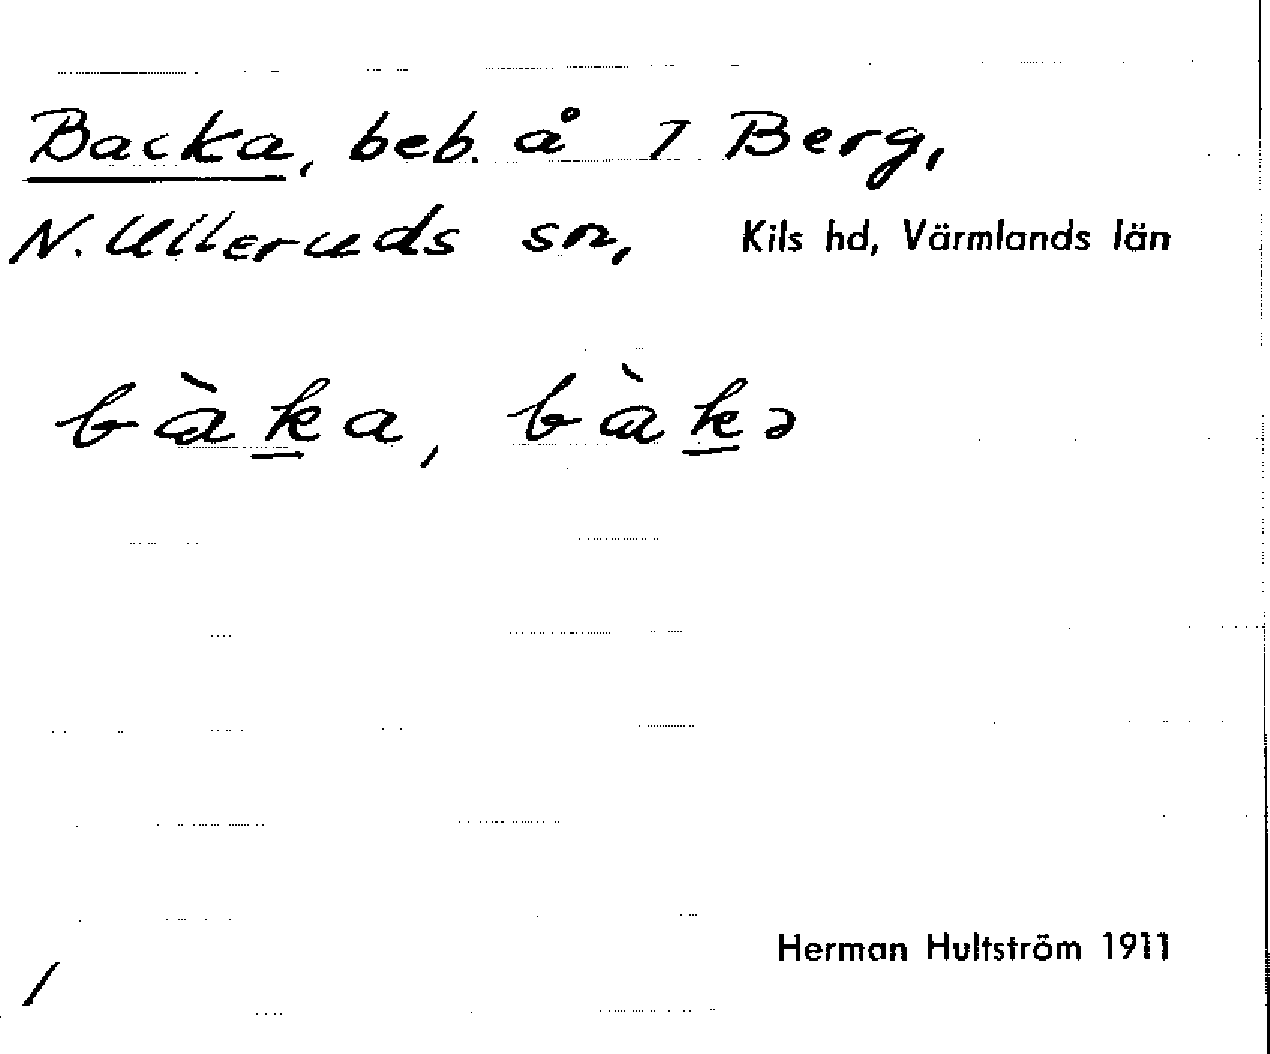 Backa, beb. å 7 Berg,
N. Ulleruds sn, Kils hd, Värmlands län
bàk̲a, bàk̲ə
Herman Hultström 1911
/